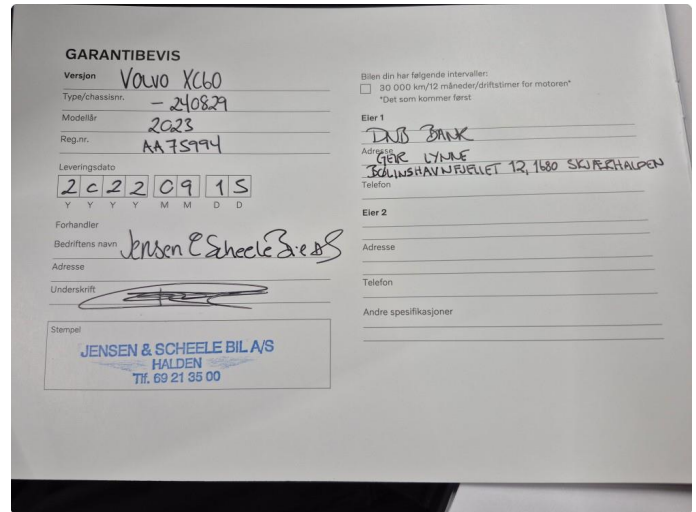 GARANTIBEVIS
Versjon Volvo XC60
Type/chassisnr. - 240829
Modellår 2023
Reg.nr. AA75994
Leveringsdato
2022 09 15
Y Y Y Y M M D D
Forhandler
Bedriftens navn Jensen & Scheele Bil AS
Adresse
Underskrift
Stempel
JENSEN & SCHEELE BIL A/S
HALDEN
Tlf. 69 21 35 00
Bilen din har følgende intervaller:
30 000 km/12 måneder/driftstimer for motoren*
*Det som kommer først
Eier 1
DNB BANK
Adresse GEIR LYNNE
12, 1680 SKJÆRHALDEN
Telefon
Eier 2
Adresse
Telefon
Andre spesifikasjoner